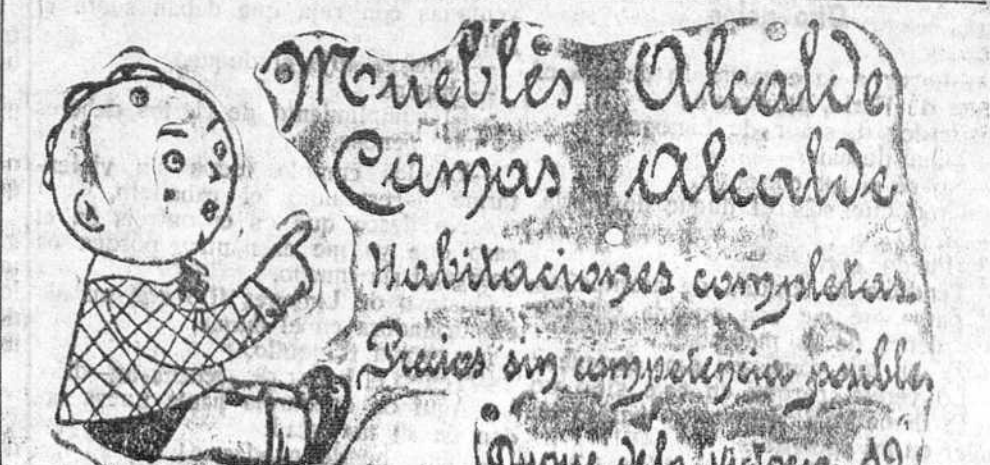 Muebles Alcalde
Camas Alcalde
Habitaciones completas.
Precios sin competencia posible.
Duque de la Victoria, 19